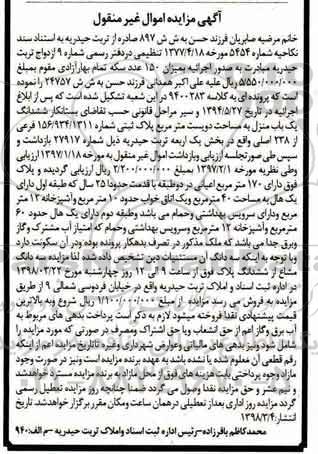 آگهی مزایده اموال غیر منقول
خانم مرضیه صابریان فرزند حسن به ش ش ۸۹۷ صادره از تربت حیدریه به استناد سند
نکاحیه شماره ۵۴۵۴ مورخه ۱۳۷۷/۴/۱۸ تنظیمی دردفتر رسمی شماره ۹ ازدواج تربت
حیدریه مبادرت به صدور اجرائیه بمیزان ۱۵۰ عدد سکه تمام بهارآزادی مقوم بمبلغ
۵/۵۵۰/۰۰۰ ریال علیه علی اکبر همدانی فرزند حسن به ش ش ۲۴۷۵۷ را نموده
است که پرونده ای به کلاسه ۹۴۰۰۲۸۳ در این شعبه تشکیل شده است که پس از ابلاغ
اجرائیه در تاریخ ۱۳۹۴/۵/۲۷ و سیر مراحل قانونی حسب تقاضای بستانکار ششدانگ
یک باب منزل به مساحت دویست متر مربع پلاک ثبتی شماره ۱۵۶/۹۳۴/۱۳۱۱ فرعی
از ۲۳۸ اصلی واقع در بخش یک اربعه تربت حیدریه ذیل شماره ۲۷۹۱۷ بازداشت و
سپس طی صورتجلسه ارزیابی وبازداشت اموال غیر منقول به مورخه ۱۳۹۷/۱/۱۸ ارزیابی
وطی نظریه مورخه ۱۳۹۷/۲/۱ بمبلغ ۲/۲۰۰/۰۰۰/۰۰۰ ریال ارزیابی گردیده و پلاک
فوق دارای ۱۷۰ متر مربع اعیانی در دوطبقه با قدمت حدود ۲۵ سال که طبقه اول دارای
یک هال به مساحت ۴۰ مترمربع ویک اتاق خواب حدود ۱۰ متر مربع وآشپزخانه ۱۳ متر
مربع ودارای سرویس بهداشتی وحمام می باشد وطبقه دوم دارای یک هال حدود ۶۰
مترمربع وآشپزخانه ۱۲ مترمربع وسرویس بهداشتی وحمام که امتیاز آب مشترک وگاز
وبرق جدا می باشد که ملک مذکور در تصرف بدهکار پرونده بوده ودر آن سکونت دارد
وبا توجه به اینکه سه دانگ آن مستثنیات دین تشخیص داده شده لذا مزایده سه دانگ
مشاع از ششدانگ پلاک فوق از ساعت ۹ الی ۱۲ روز چهارشنبه مورخ ۱۳۹۸/۰۳/۲۲
در اداره ثبت اسناد و املاک تربت حیدریه واقع در خیابان فردوسی شمالی ۹ از طریق
مزایده به فروش می رسد مزایده از مبلغ ۱/۱۰۰/۰۰۰/۰۰۰ ریال شروع وبه بالاترین
قیمت پیشنهادی نقدا فروخته میشود لازم به ذکر است پرداخت بدهی های مربوط به
آب برق وگاز اعم از حق انشعاب ویا حق اشتراک ومصرف در صورتی که مورد مزایده را
شامل شود ونیز بدهی های مالیاتی وعوارض شهرداری وغیره تاتاریخ مزایده اعم از اینکه
رقم قطعی آن معلوم شده یا نشده باشد به عهده برنده مزایده است ونیز در صورت وجود
مازاد وجوه پرداختی بابت هزینه های فوق از محل مازاد به برنده مزایده مسترد خواهدشد
و نیم عشر و حق مزایده نقدا وصول می گردد ضمنا چنانچه روز مزایده تعطیل رسمی
گردد مزایده روز اداری بعداز تعطیلی درهمان ساعت ومکان مقرر برگزار خواهدشد. تاریخ
انتشار:۱۳۹۸/۳/۴
محمدکاظم باقرزاده–رئیس اداره ثبت اسناد واملاک تربت حیدریه –م الف:۹۴۰